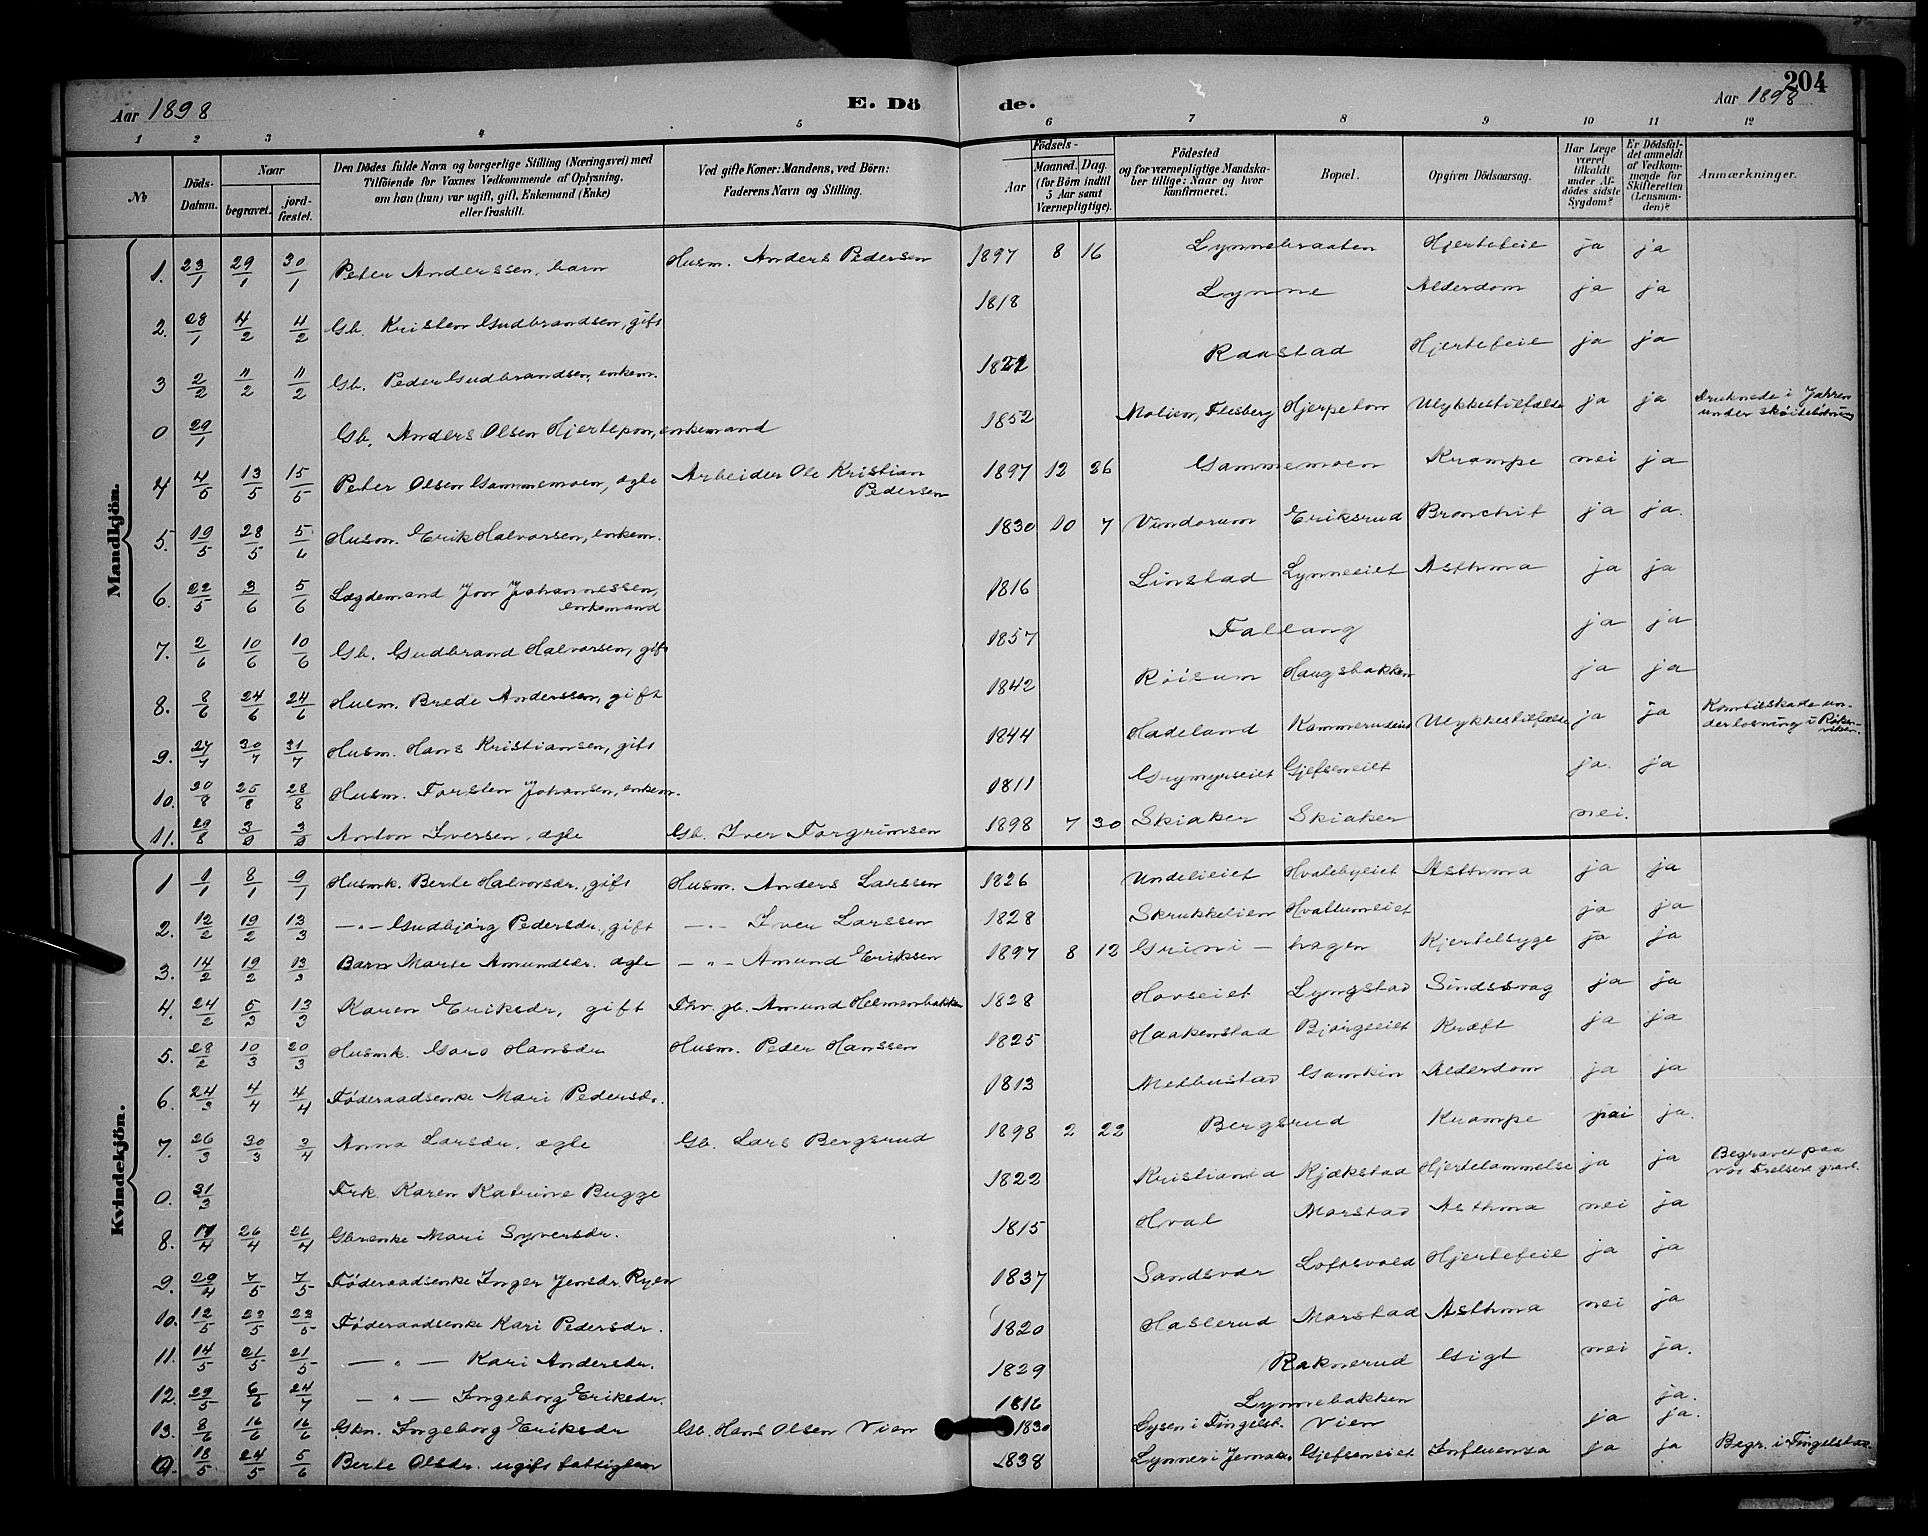 204
Aar 1898 E. Dö de. Aar 1898
1 2 3 4 5 6 7 8 9 10 11 12
No Döds-Datum. Naar begravet. jord-fæstet. Den Dödes fulde Navn og borgerlige Stilling (Næringsvei) med Tilföiende for Voxnes Vedkommende af Oplysning, om han (hun) var ugift, gift, Enkemand (Enke) eller fraskilt. Ved gifte Koner: Mandens, ved Børn: Faderens Navn og Stilling. Födsels- Aar Maaned. Dag. (for Börn indtil 5 Aar samt Værnepligtige). Födested og for værnepligtige Mandskaber tillige: Naar og hvor konfirmeret. Bopæl. Opgiven Dödsaarsag. Har Læge været tilkaldt under Afdödes sidste Sygdom? Er Dödsfaldet anmeldt af Vedkommende for Skifteretten (Lensmanden)? Anmærkninger.
Mandkjön.
1. 23/1 29/1 30/1 Peter Anderssen, barn Husm. Anders Pedersen 1897 8 16 Lynnebraaten Hjertefeil ja ja
2. 28/1 4/2 4/2 Gb. Kristen Gudbrandsen, gift 1818 Lynne Alderdom ja ja
3 2/2 11/2 11/2 Gb. Peder Gudbrandsen, enkem. 1821 Raastad Hjertefeil ja ja
0 29/1 Gb. Anders Olsen Hjertepon, enkemand 1852 Molien, Flesberg Hjerpeton Ulykkestilfælde ja ja Druknede i Jahren under skøiteløbning
4 4/5 13/5 15/5 Peter Olsen Gammemoen, ægte Arbeider Ole Kristian Pedersen 1897 12 26 Gammemoen Krampe nei ja
5. 19/5 28/5 5/6 Husm. Erik Halvorsen, enkem. 1830 10 7 Vindorum Eriksrud Bronchit ja ja.
6. 22/5 3/6 5/6 Lægdemand Jon Johannessen, enkemand 1816 Linstad Lynneeiet Asthma ja ja
7. 2/6 10/6 10/6 Gb. Gudbrand Halvorsen, gift 1857 Fallang ja ja
8. 8/6 24/6 24/6 Husm. Brede Anderssen, gift 1842 Röisum Haugsbakken ja ja
9. 27/7 30/7 31/7 Husm. Hans Kristiansen, gift 1844 Hadeland Kammerudeiet Ulykkestilfælde ja ja
10. 20/8 25/8 28/8 Husm. Torsten Johansen, enkem. 1811 Grymyrseiet Gjefseneiet ja. ja
11. 29/8 3/9 3/9 Anton Iversen, ægte Gb. Iver Torgrimsen 1898 7 30 Skiaker Skiaker nei.
Kvindekjön.
1 1/1 8/1 9/1 Husmk. Berte Halvorsdr., gift Husm. Anders Larssen 1826 Undelieiet Hvalebyeiet Asthma ja ja
2. 12/2 19/2 13/3 —"— Gudbjørg Pedersdr., gift —"— Iver Larssen 1828 Skrukkelien Hvattumeiet ja ja
3. 14/2 19/2 13/3 Barn Marte Amundsdr. ægte —"— Amund Eriksen 1897 8 12 Grini — hagen Kjertelsyge ja ja
4. 24/2 5/3 13/3 Karen Eriksdr, gift Fhv. gb. Amund Helmenbakken 1828 Hovseiet Lyngstad Sindssvag ja ja
5. 28/2 10/3 20/3 Husmk. Goro Hansdr Husm. Peder Hanssen 1825 Haakenstad Bjørgeeiet Kræft ja ja
6. 24/3 4/4 4/4 Føderaadsenke Mari Pedersdr. 1813 Melbustad Gamkin Alderdom ja ja
7. 26/3 30/3 3/4 Anna Larsdr, ægte Gb. Lars Bergsrud 1898 2 22 Bergsrud Krampe nei ja.
0. 31/3 Frk. Karen Katrine Bugge 1822 Kristiania Kjækstad Hjertelammelse ja ja Begravet paa vor Frelsers gravl.
8. 17/4 26/4 26/4 Gbrenke Mari Syversdr. 1815 Hval Morstad Asthma nei ja
9. 29/4 7/5 7/5 Føderaadsenke Inger Jensdr. Ryen 1837 Sandsvær Loftsvold Hjertefeil ja ja
10. 12/5 22/5 22/5 Føderaadsenke Kari Pedersdr. 1820 Haslerud Morstad Asthma nei ja
11. 14/5 21/5 21/5 —"— Kari Andersdr. 1829 Raknerud Gigt nei ja.
12. 29/5 6/6 24/7 —"— Ingeborg Eriksdr. 1816 Lynnebakken ja.
13. 8/6 16/6 16/6 Gkn. Ingeborg Eriksdr Gb. Hans Olsen Vien 1830 Lysen i Tingelst. Vien ja ja.
0. 18/5 24/5 5/6 Berte Olsdr. ugift fattiglem 1838 Lynner i Jevnak. Gjefseneiet Influenza ja ja Begr. i Tingelstad.